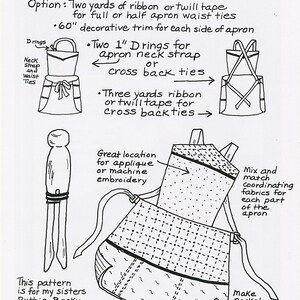 Option: Two yards of ribbon or twill tape
for full or half apron waist ties
• 60" decorative trim for each side of apron
D rings
• Two 1" D rings for
apron neck strap
or
cross back ties
Neck
Strap
and
Waist
Ties
• Three yards ribbon
or twill tape for
cross back ties
Great location
for applique
or machine
embroidery
Mix and
match
coordinating
fabrics for
each part
of the
apron.
This pattern
is for my sisters
Make